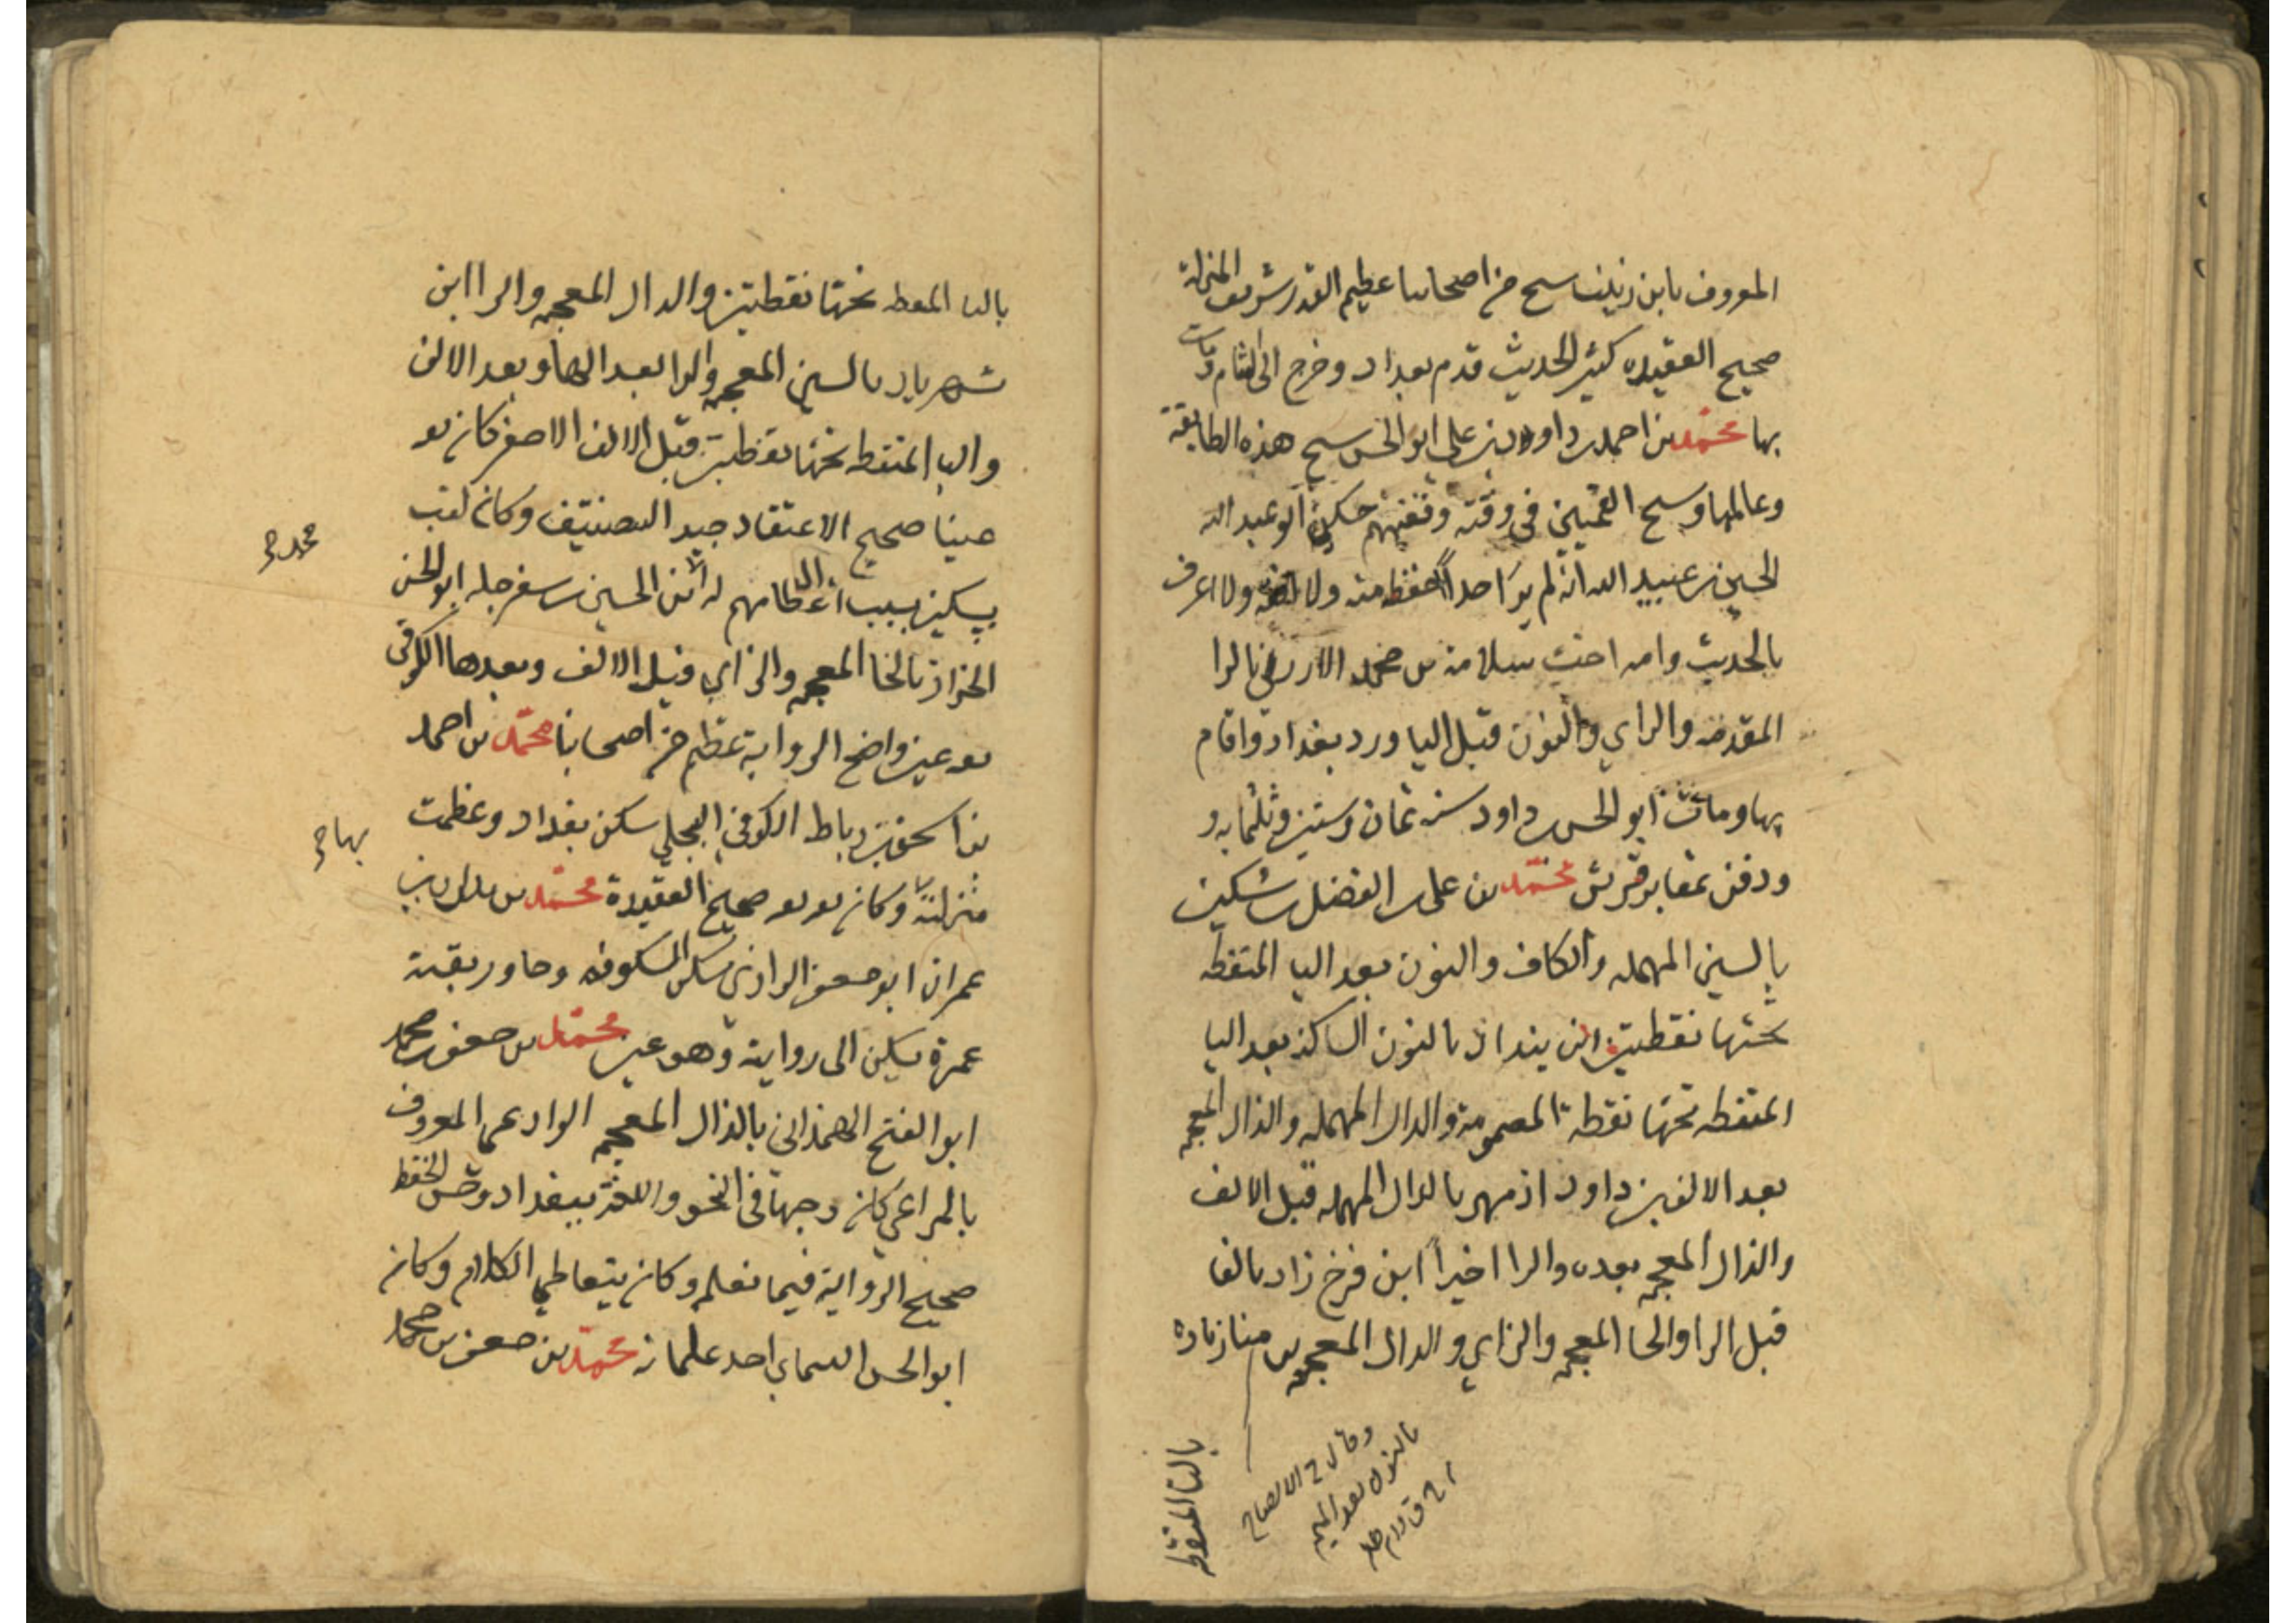 المعروف بابن زينب شيخ من اصحابنا عظيم القدر شريف المنزلة
صحيح العقيده كثير الحديث قدم بغداد وخرج الى الشام ومات
بها محمد بن احمد بن داود بن علي ابو الحسن شيخ هذه الطايفة
وعالمها وشيخ القميين في وقته وفقيههم حكى ابو عبد الله
الحسين بن عبيد الله انه لم ير احداً احفظ منه ولا افقه ولا اعرف
بالحديث وامه اخت سلامة بن محمد الارزني بالرا
المقدمه والزاي والنون قبل اليا ورد بغداد واقام
بها ومات ابو الحسن بن داود سنه ثمان وستين وثلثمايه و
ودفن بمقابر قريش محمد بن علي بن الفضل بن سكين
بالسين المهمله والكاف والنون بعد اليا المنقطه
تحتها نقطتين ابن بنداد بالنون الساكنه بعد البا
المنقطه تحتها نقطه المضمومة والدال المهمله والذال المعجمه
بعد الالف بن داود اذ مهر بالدال المهمله قبل الالف
والذال المعجمه بعده والرا اخيراً ابن فرخ زاد بالفا
قبل الرا والخا المعجمه والزاي والدال المعجمه بن مياذرماه
وقال في الايضاح
بالنون بعد الميم
باليا المنقطه
باليا المنقطه تحتها نقطتين والدال المعجمه والرا ابن
شهريار بالشين المعجمه والرا بعد الها وبعد الالف
واليا المنقطه تحتها نقطتين قبل الالف الاصغر كان ثقه
عينا صحيح الاعتقاد جيد التصنيف وكان لقب
بسكين بسبب اعظامهم له ابن الحسين بن سفرجله ابو الحسن
الخزاز بالخا المعجمه والزاي قبل الالف وبعدها الكوفي
ثقه عين واضح الرواية عظيم من اصحابنا محمد بن احمد
بن اسحق بن رباط الكوفي البجلي سكن بغداد وعظمت
منزلته بها وكان ثقه ثقه صحيح العقيدة محمد بن بكران بن
عمران ابو جعفر الرازي سكن الكوفه وجاور بقية
عمرة يسكن الى رواية وهو عين محمد بن جعفر بن محمد
ابو الفتح الهمذاني بالذال المعجمه الوادعي المعروف
بالمراغي كان وجها في النحو واللغة ببغداد وحسن الحفظ
صحيح الرواية فيما نعلم وكان يتعاطى الكلام وكان
ابو الحسن السمسمي احد غلمانه محمد بن جعفر بن محمد
محمد
بها